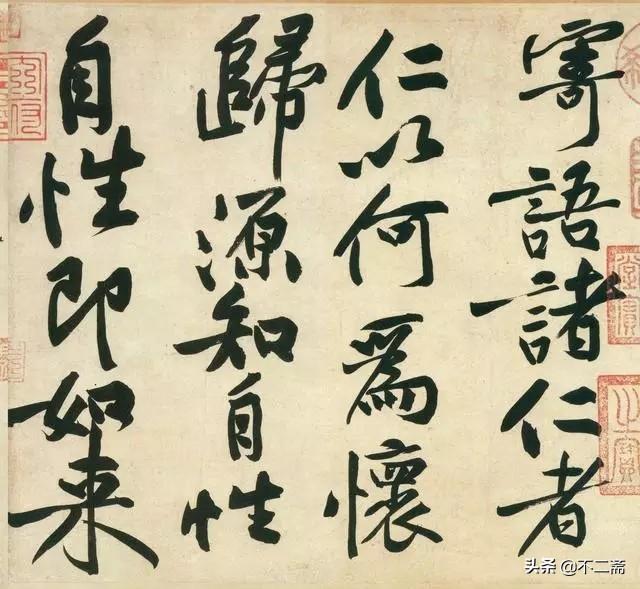 寄語諸仁者
仁以何爲懷
歸源知自性
自性即如来
头条 @不二斋